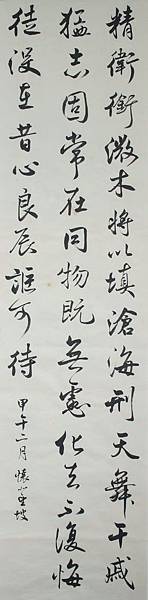 精衛銜微木將以填滄海刑天舞干戚
猛志固常在同物既無慮化去不復悔
徒設在昔心良辰詎可待
甲午二月